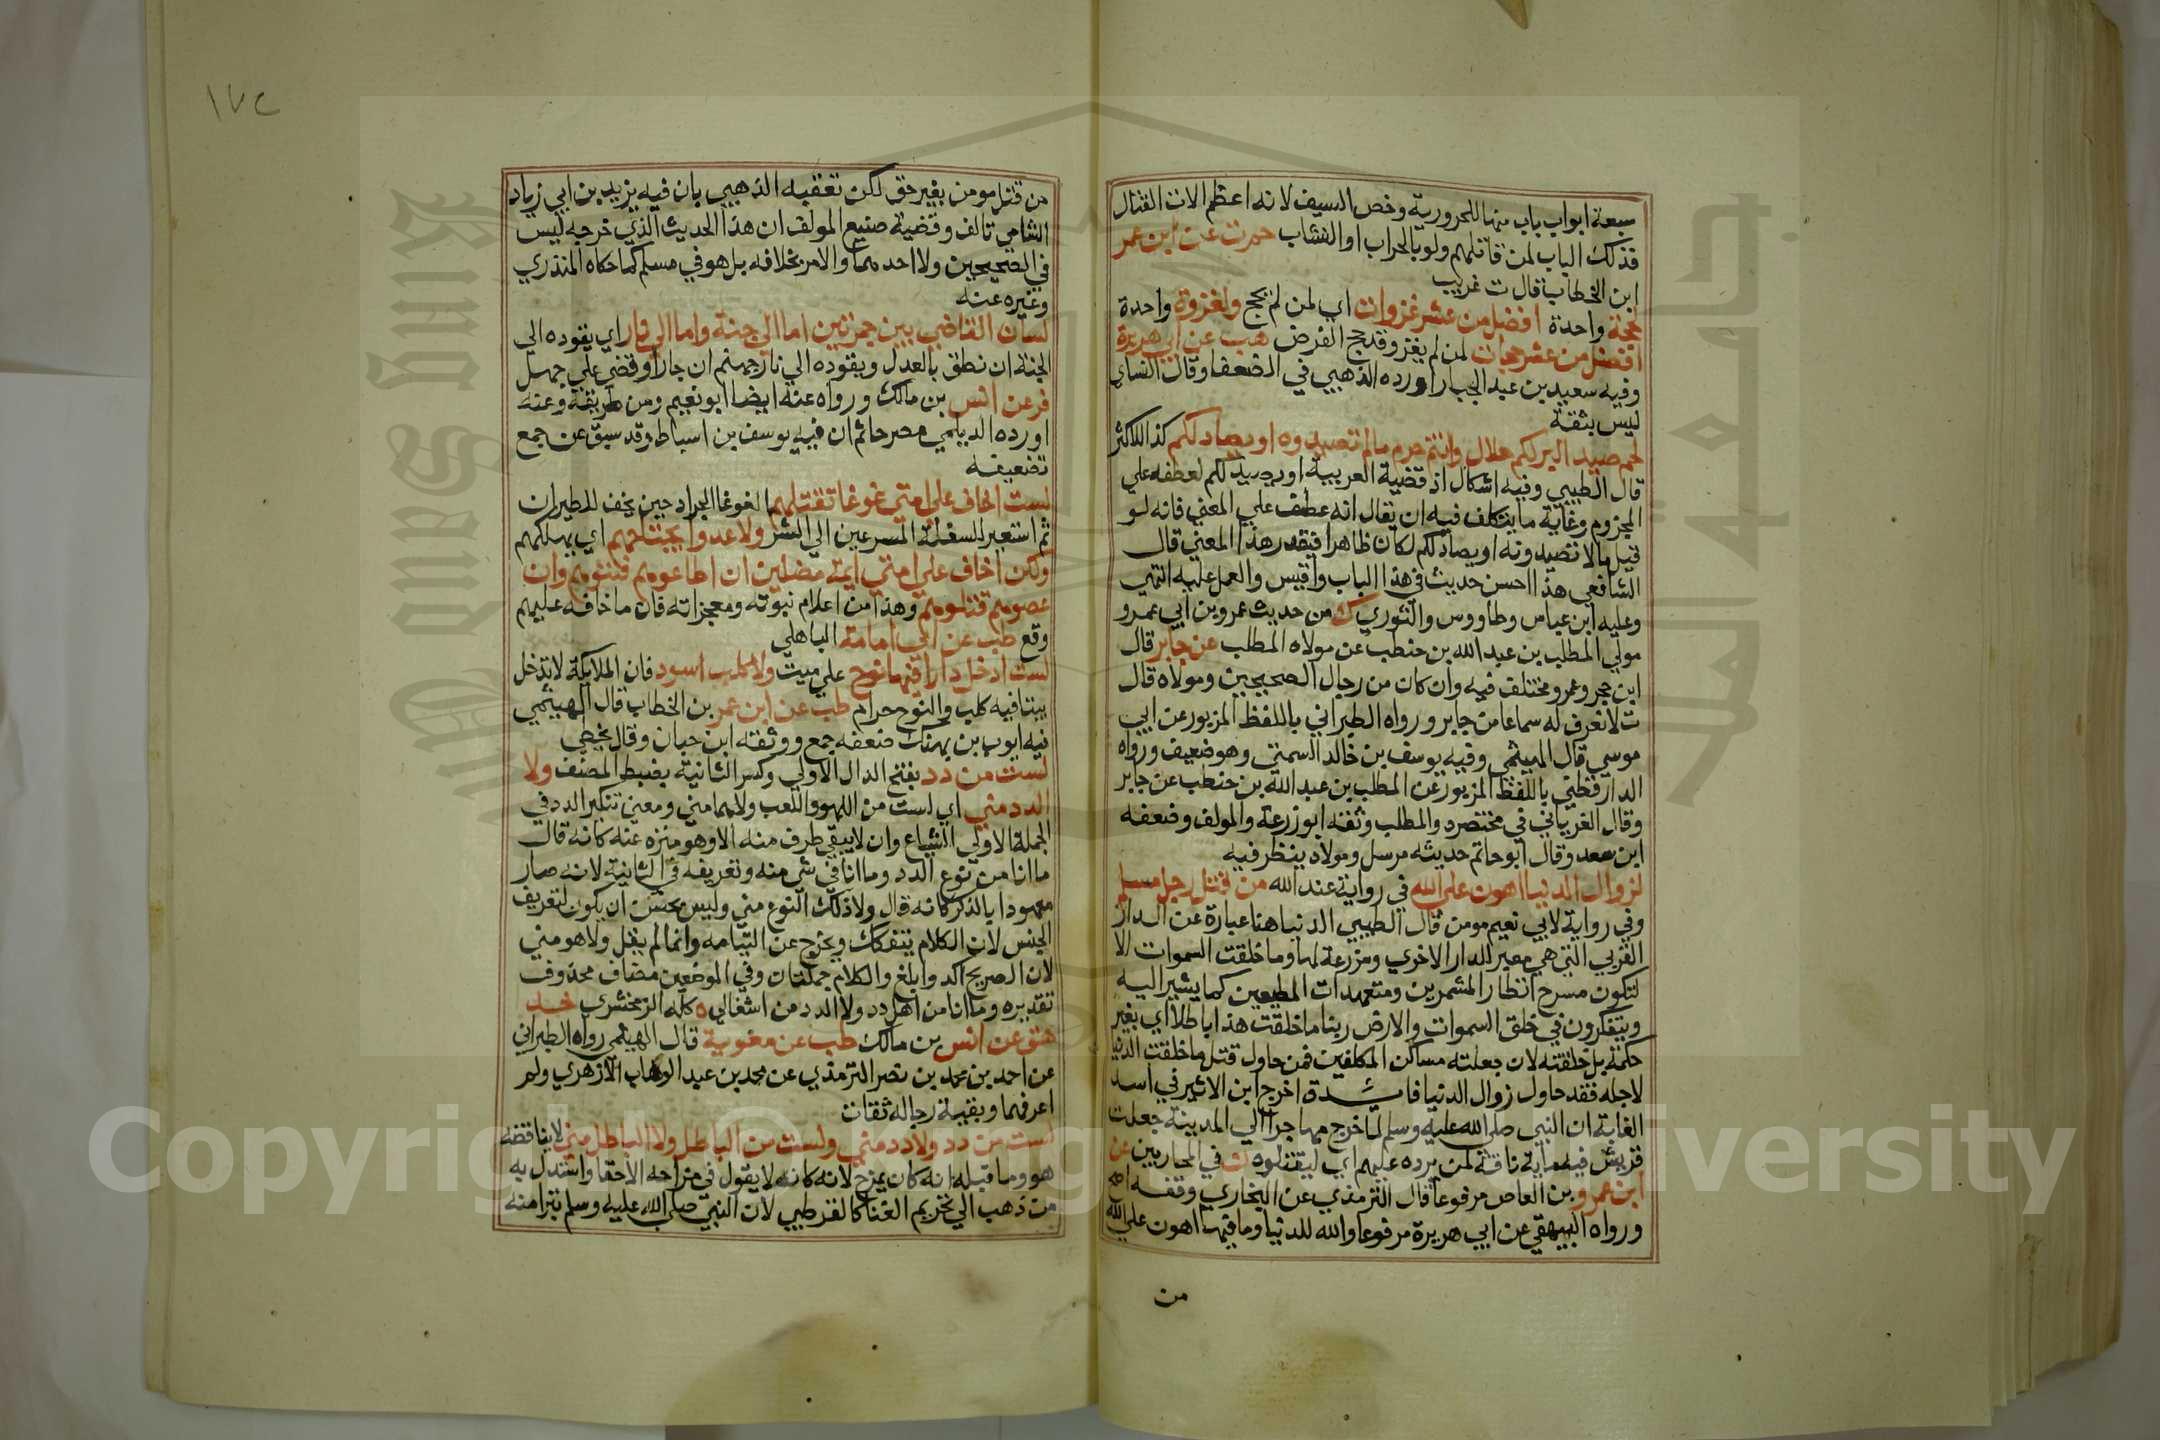 سبعة ابواب باب منها للحرورية وخص السيف لانه اعظم الات القتال
فذلك الباب لمن قاتلهم ولو بالحراب او النشاب حم ت عن ابن عمر
ابن الخطاب قال ت غريب
لحجة واحدة افضل من عشر غزوات اي لمن لم يحج ولغزوة واحدة
افضل من عشر حجات لمن لم يغز وقد حج الفرض هب عن ابي هريرة
وفيه سعيد بن عبد الجبار اورده الذهبي في الضعفا وقال النساي
ليس بثقة
لحم صيد البر لكم حلال وانتم حرم مالم تصيدوه او يصاد لكم كذا للاكثر
قال الطيبي وفيه اشكال اذ قضية العربية او يصد لكم لعطفه علي
المجزوم وغاية ما يتكلف فيه ان يقال انه عطف علي المعني فانه لو
قيل مالا تصيدونه او يصاد لكم لكان ظاهرا فيقدر هذا المعني قال
الشافعي هذا احسن حديث في هذا الباب واقيس والعمل عليه انتهي
وعليه ابن عباس وطاووس والثوري ك من حديث عمرو بن ابي عمرو
مولي المطلب بن عبد الله بن حنطب عن مولاه المطلب عن جابر قال
ابن حجر وعمرو مختلف فيه وان كان من رجال الصحيحين ومولاه قال
ت لا نعرف له سماعا من جابر ورواه الطبراني باللفظ المزبور عن ابي
موسي قال الهيثمي وفيه يوسف بن خالد السمتي وهو ضعيف ورواه
الدارقطني باللفظ المزبور عن المطلب بن عبد الله بن حنطب عن جابر
وقال الغرياني في مختصره والمطلب وثقه ابو زرعة والمولف وضعفه
ابن سعد وقال ابو حاتم حديثه مرسل ومولاه ينظر فيه
لزوال الدنيا اهون علي الله في رواية عند الله من قتل رجل مسلم
وفي رواية لابي نعيم مومن قال الطيبي الدنيا هنا عبارة عن الدار
القربي التي هي معبر للدار الاخري ومزرعة لها وما خلقت السموات الا
لتكون مسرح انظار المشمرين ومتعبدات المطيعين كما يشير اليه
ويتفكرون في خلق السموات والارض ربنا ما خلقت هذا باطلا اي بغير
حكمة بل خلقته لان جعلته مساكن المكلفين فمن حاول قتل ما خلقت الدنيا
لاجله فقد حاول زوال الدنيا فايدة اخرج ابن الاثير في اسد
الغابة ان النبي صلي الله عليه وسلم لما خرج مهاجرا الي المدينة جعلت
قريش فيه ماية ناقة لمن يرده عليهم اي ليقتلوه ت في المحاربين عن
ابن عمرو بن العاص مرفوعا قال الترمذي عن البخاري وقفه اصح
ورواه البيهقي عن ابي هريرة مرفوعا والله للدنيا وما فيها اهون علي الله
من
١٧٢
من قتل مومن بغير حق لكن تعقبه الذهبي بان فيه يزيد بن ابي زياد
الشامي تالف وقضية صنيع المولف ان هذا الحديث الذي خرجه ليس
في الصحيحين ولا احدهما والامر بخلافه بل هو في مسلم كما حكاه المنذري
وغيره عنه
لسان القاضي بين جمرتين اما الي جنة واما الي نار اي يقوده الي
الجنة ان نطق بالعدل ويقوده الي نار جهنم ان جار او قضي علي جهل
فر عن انس بن مالك ورواه عنه ايضا ابو نعيم ومن طريقه وعنه
اورده الديلمي مصرحا ثم ان فيه يوسف بن اسباط وقد سبق عن جمع
تضعيفه
لست اخاف علي امتي غوغا تقتلهم الغوغا الجراد حين يخف للطيران
ثم استعير للسفلة المسرعين الي الشر ولا عدوا يجتاحهم اي يهلكهم
ولكن اخاف علي امتي ايمة مضلين ان اطاعوهم فتنوهم وان
عصوهم قتلوهم وهذا من اعلام نبوته ومعجزاته فان ما خافه عليهم
وقع طب عن ابي امامة الباهلي
لست ادخل دارا فيها نوح علي ميت ولا كلب اسود فان الملايكة لا تدخل
بيتا فيه كلب والنوح حرام طب عن ابن عمر بن الخطاب قال الهيثمي
فيه ايوب بن نهيك ضعفه جمع ووثقه ابن حبان وقال يخطي
لست من دد بفتح الدال الاولي وكسر الثانية بضبط المصنف ولا
الدد مني اي لست من اللهو واللعب ولا هما مني ومعني تنكير الدد في
الجملة الاولي الشياع وان لا يبقي طرف منه الا وهو منزه عنه كانه قال
ما انا من نوع الدد وما انا في شي منه وتعريفه في الثانية لانه صار
معهودا بالذكر كانه قال ولا ذلك النوع مني وليس بحسن ان يكون لتعريف
الجنس لان الكلام يتفكك ويخرج عن التيامه وانما لم يقل ولا هو مني
لان الصريح اكد وابلغ والكلام جملتان وفي الموضعين مضاف محذوف
تقديره وما انا من اهل دد ولا الدد من اشغالي ه كله الزمخشري خد
هق عن انس بن مالك طب عن معوية قال الهيثمي رواه الطبراني
عن احمد بن محمد بن نصر الترمذي عن محمد بن عبد الوهاب الازهري ولم
اعرفهما وبقية رجاله ثقات
لست من دد ولا دد مني ولست من الباطل ولا الباطل مني لا يناقضه
هو وما قبله انه كان يمزح لانه كانه لا يقول في مزاحه الا حقا واستدل به
من ذهب الي تحريم الغنا كالقرطبي لان النبي صلي الله عليه وسلم تبرا منه
King Saud University
جامعة الملك سعود
Copyright © King Saud University